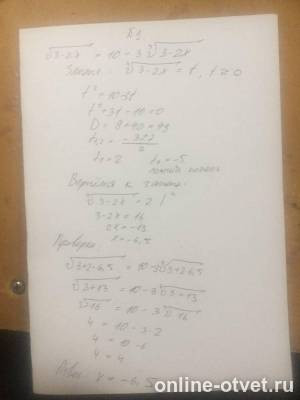 №1
√3-2x = 10-3 ∜3-2x
Замена: ∜3-2x = t, t ≥ 0
t² = 10-3t
t² + 3t - 10 = 0
D = 8+40 = 49
t₁,₂ = (-3±7)/2
t₁ = 2 t₂ = -5
Вернёмся к замене:
∜3-2x = 2
3-2x = 16
2x = -13
x = -6,5
Проверка:
√3+2·6,5 = 10-3∜3+2·6,5
√3+13 = 10-3∜3+13
√16 = 10-3∜16
4 = 10-3·2
4 = 10-6
4 = 4
Ответ: x = -6,5
online-otvet.ru